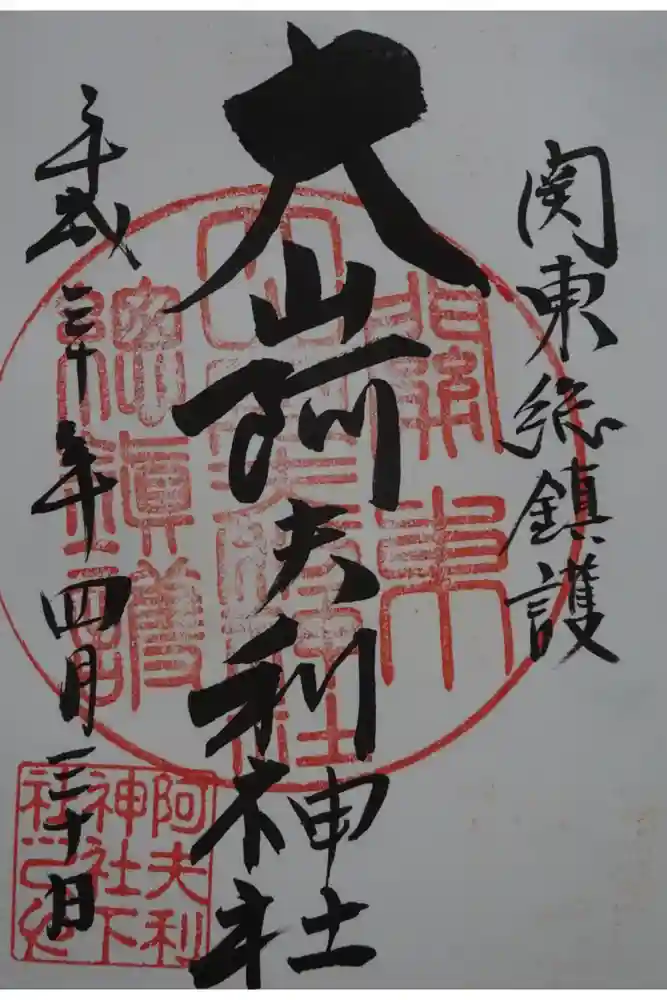 関東総鎮護
大山阿夫利神社
平成三十年四月三十日
關東
大山阿夫利神社
總鎮護
阿夫利
神社下
社之印